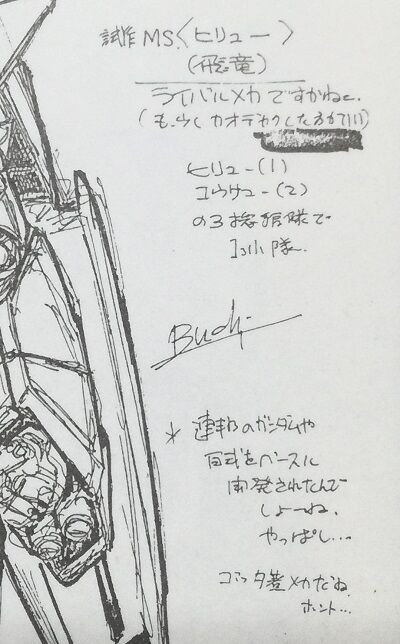 試作MS.〈ヒリュー〉
(飛竜)
ライバルメカですかねェ.
(もう少しカオデカクした方が
ヒリュー(1)
コウサュー(2)
の3機編隊で
1コ小隊.
Buch
* 連邦のガンダムや
百式をベースに
開発されたんで
しょーね.
やっぱし...
ゴッタ煮メカだね
ホント...